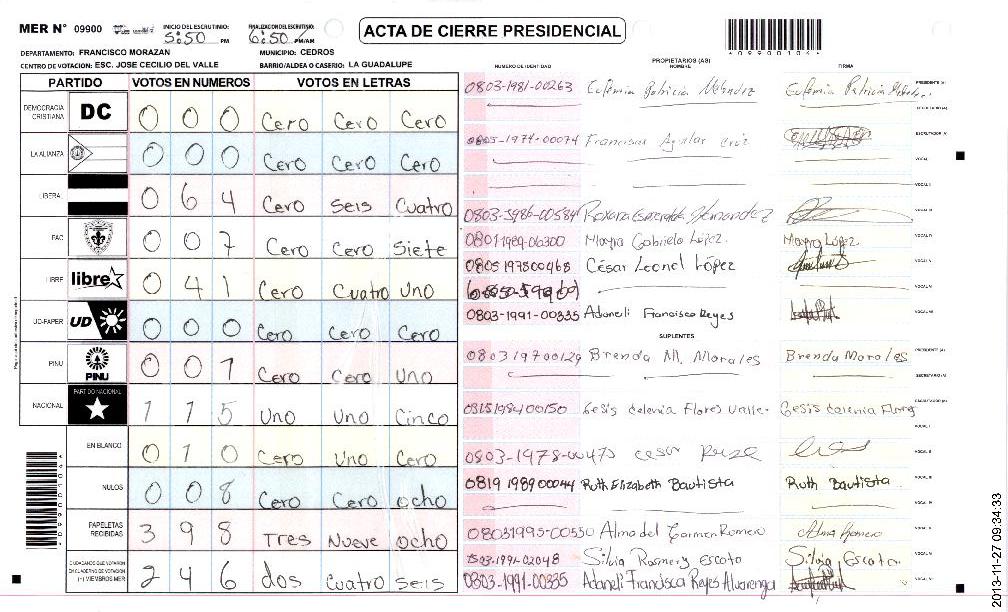 MER N° 09900
INICIO DEL ESCRUTINIO: 5:50 PM
FINALIZACION DEL ESCRUTINIO: 6:50 PM/AM
ACTA DE CIERRE PRESIDENCIAL
*09900104*
DEPARTAMENTO: FRANCISCO MORAZAN
MUNICIPIO: CEDROS
CENTRO DE VOTACION: ESC. JOSE CECILIO DEL VALLE
BARRIO/ALDEA O CASERIO: LA GUADALUPE
PARTIDO VOTOS EN NUMEROS VOTOS EN LETRAS
DEMOCRACIA CRISTIANA DC 0 0 0 Cero Cero Cero
LA ALIANZA 0 0 0 Cero Cero Cero
LIBERAL 0 6 4 Cero Seis Cuatro
PAC 0 0 7 Cero Cero Siete
LIBRE libre 0 4 1 Cero Cuatro Uno
UD-FAPER UD 0 0 0 Cero Cero Cero
PINU PINU 0 0 1 Cero Cero Uno
NACIONAL PARTIDO NACIONAL 1 1 5 Uno Uno Cinco
EN BLANCO 0 1 0 Cero Uno Cero
NULOS 0 0 8 Cero Cero ocho
PAPELETAS RECIBIDAS 3 9 8 Tres Nueve ocho
CIUDADANOS QUE VOTARON EN CUADERNO DE VOTACION (+) MIEMBROS MER 2 4 6 dos Cuatro Seis
PROPIETARIOS (AS)
NUMERO DE IDENTIDAD NOMBRE FIRMA
0803-1981-00263 Eufemia Patricia Meléndez PRESIDENTE (A)
SECRETARIO (A)
0805-1974-00074 Francisca Aguilar Cruz ESCRUTADOR (A)
VOCAL I
VOCAL II
0803-1986-00584 Roxana Esmeralda Hernandez VOCAL III
0801-1989-06300 Mayra Gabriela López. Mayra López. VOCAL IV
0805197800468 César Leonel López VOCAL V
VOCAL VI
0803-1991-00335 Adoneli Francisco Reyes VOCAL VII
SUPLENTES
080319700129 Brenda M. Morales Brenda Morales PRESIDENTE (A)
SECRETARIO (A)
0815198400150 Gesis delenia Flores Valle. ESCRUTADOR (A)
VOCAL I
0803-1978-00475 cesar VOCAL II
0819 1989 00044 Ruth Elizabeth Bautista Ruth Bautista VOCAL III
VOCAL IV
08031995-00550 Alma del Carmen Romero Alma Romero VOCAL V
1503-1991-02048 Silvia Rosmery escoto Silvia Escoto VOCAL VI
0803-1991-00335 Adoneli Francisca Reyes Alvarenga VOCAL VII
*09900104*
2013-11-27 09:34:33